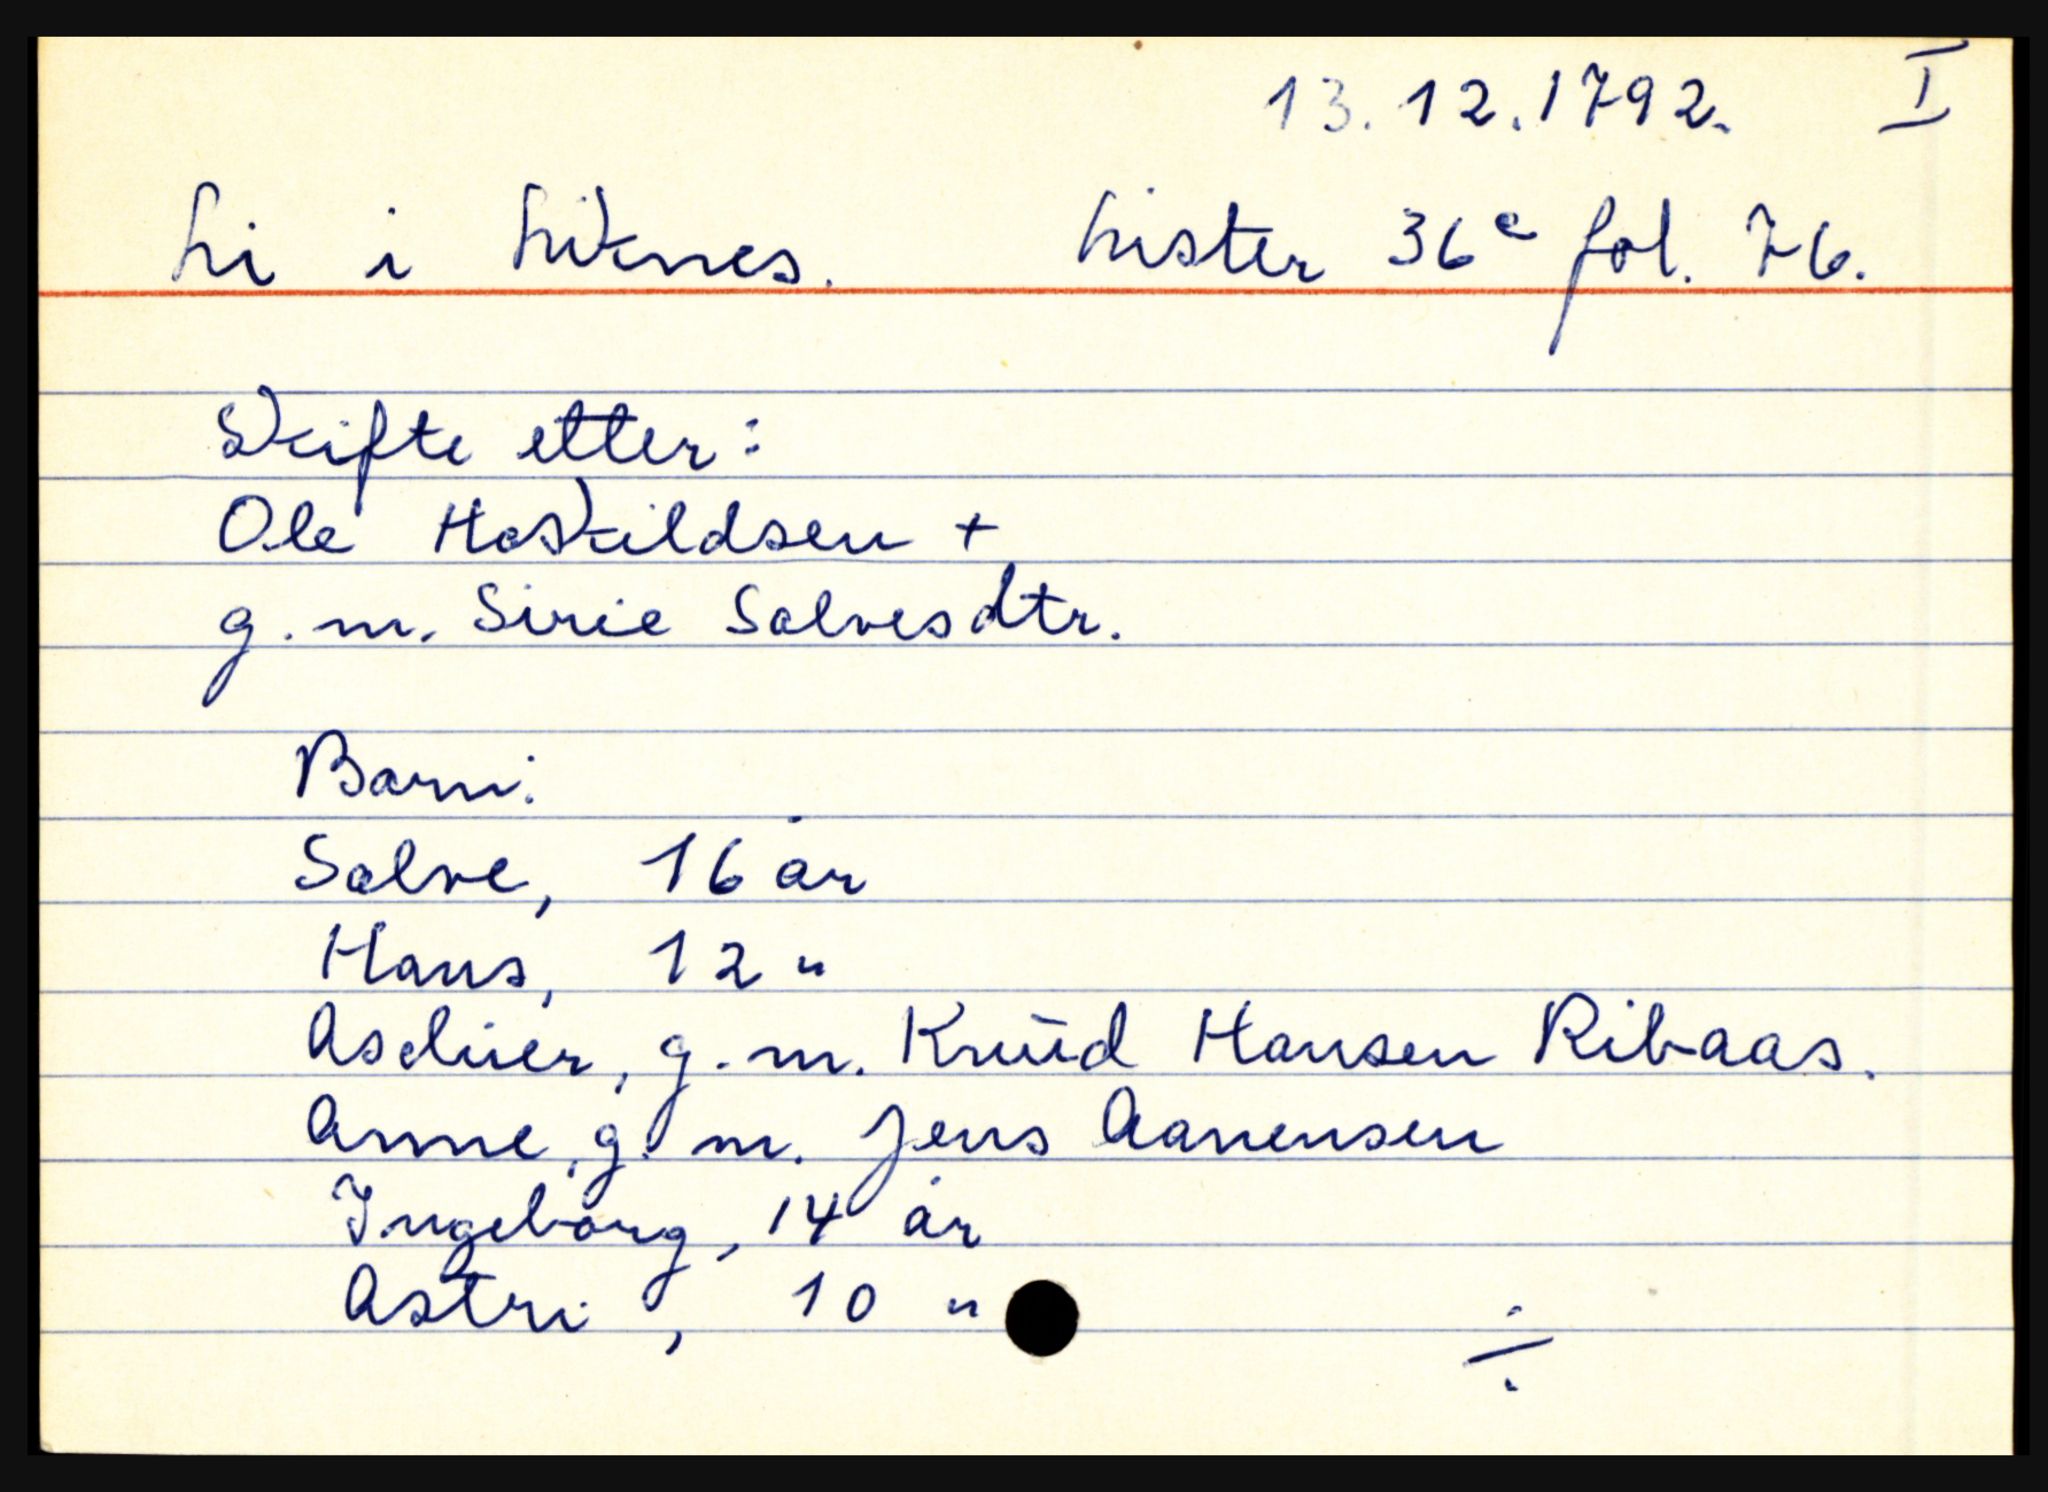 13.12.1792. I
Li i Liknes. Lister 36c fol. 76.
Skifte etter:
Ole Haskildsen +
g.m. Sirie Salvesdtr.
Barn:
Salve, 16 år
Hans, 12 "
g.m. Knud Hansen Ribaas.
Anne, g.m. Jens Aanensen
Ingeborg, 14 år
Astri, 10 "